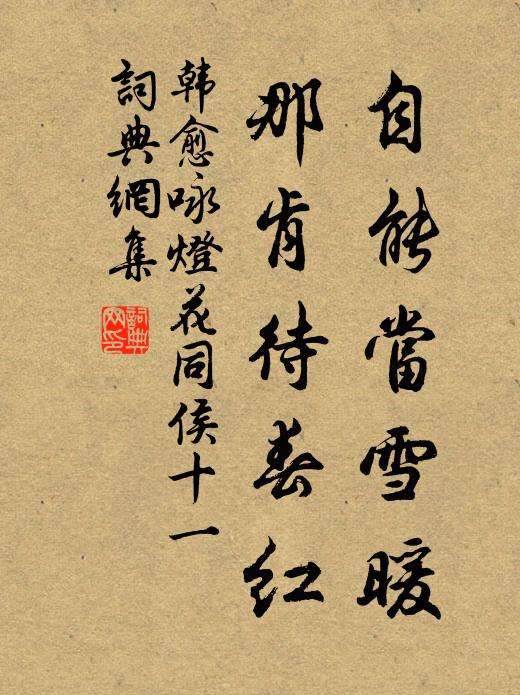 自能當雪暖
那肯待春紅
韩愈咏燈花同侯十一
詞典網集
詞典
网印